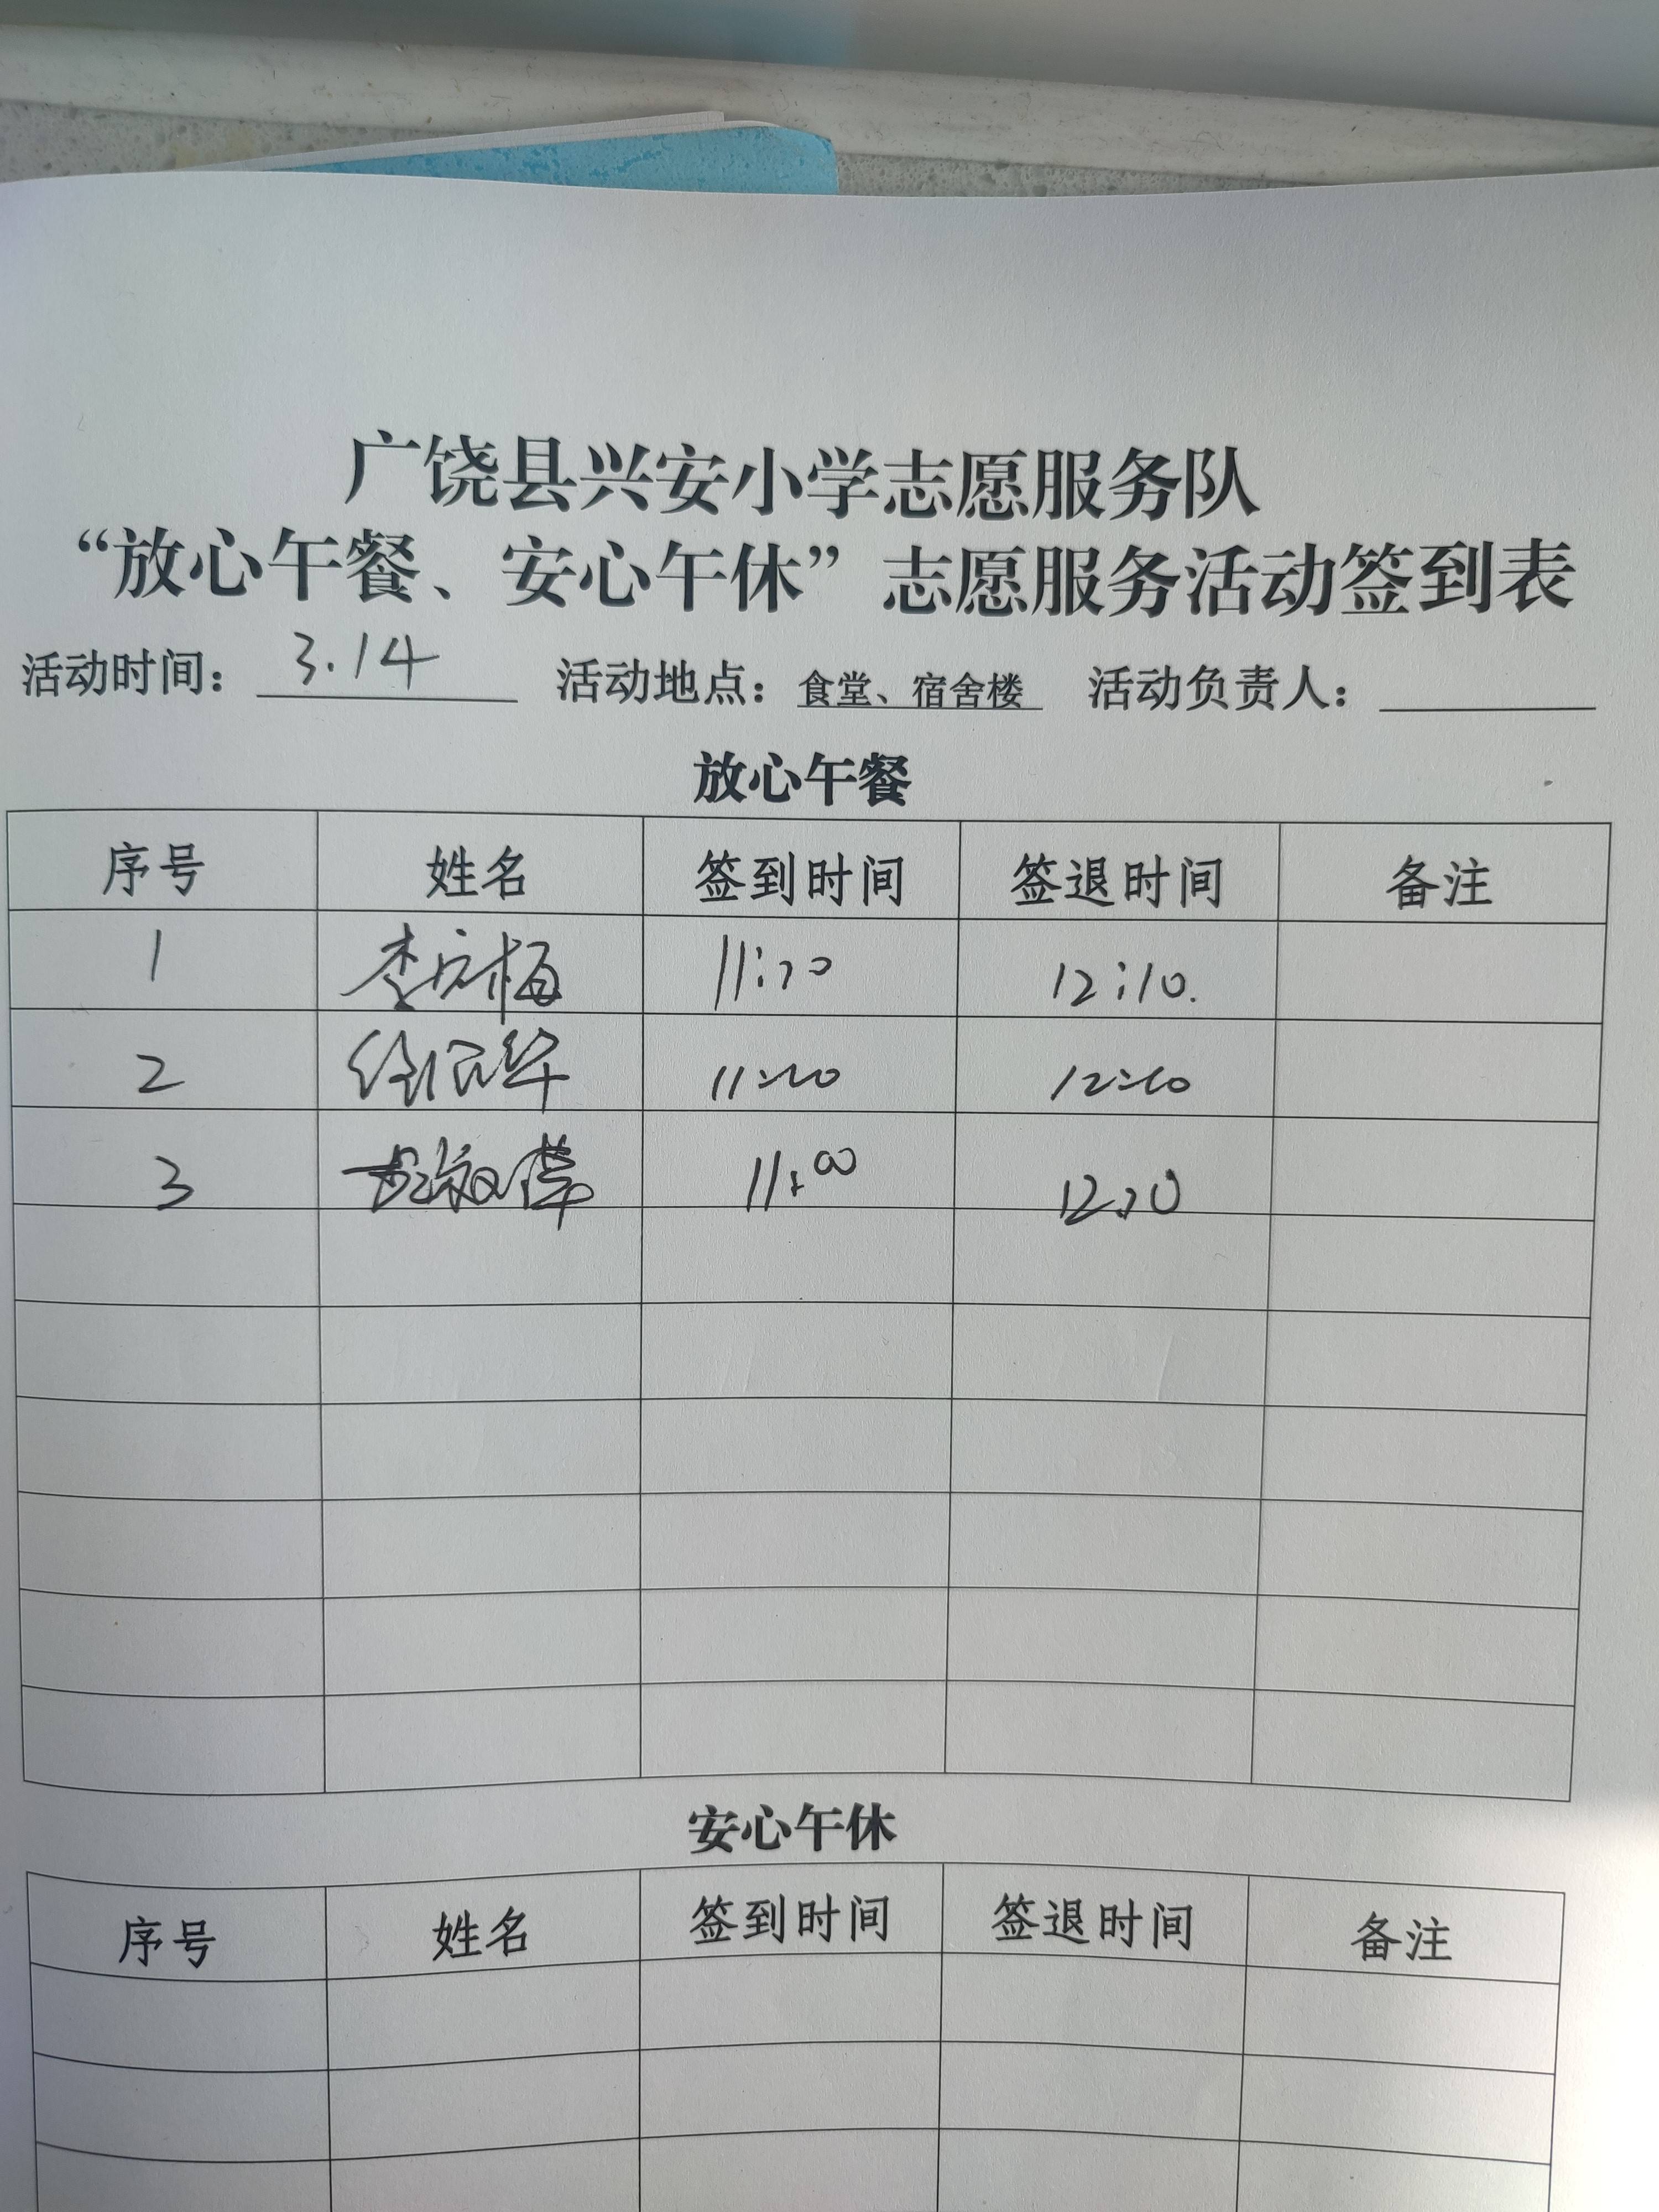 广饶县兴安小学志愿服务队
“放心午餐、安心午休”志愿服务活动签到表
活动时间：3.14 活动地点：食堂、宿舍楼 活动负责人：
放心午餐
序号 姓名 签到时间 签退时间 备注
1 12:10.
2
3 11:00
安心午休
序号 姓名 签到时间 签退时间 备注